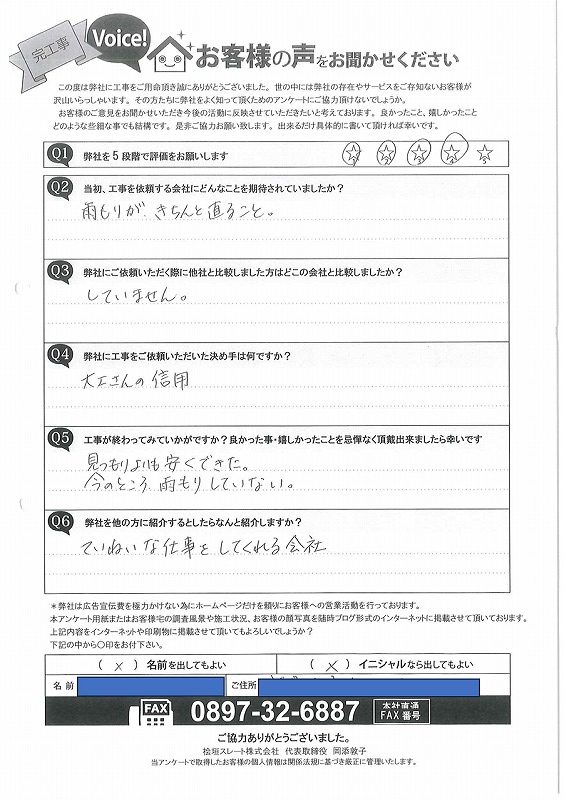 完工事
Voice!
お客様の声をお聞かせください
この度は弊社に工事をご用命頂き誠にありがとうございました。世の中には弊社の存在やサービスをご存知ないお客様が
沢山いらっしゃいます。その方たちに弊社をよく知って頂くためのアンケートにご協力頂けないでしょうか。
お客様のご意見をお聞かせいただき今後の活動に反映させていただきたいと考えております。良かったこと、嬉しかったこと
どのような些細な事でも結構です。是非ご協力お願い致します。出来るだけ具体的に書いて頂ければ幸いです。
Q1 弊社を5段階で評価をお願いします ☆1 ☆2 ☆3 ☆4 ☆5
Q2 当初、工事を依頼する会社にどんなことを期待されていましたか？
雨もりが、きちんと直ること。
Q3 弊社にご依頼いただく際に他社と比較しました方はどこの会社と比較しましたか？
していません。
Q4 弊社に工事をご依頼いただいた決め手は何ですか？
大工さんの信用
Q5 工事が終わってみていかがですか？良かった事・嬉しかったことを忌憚なく頂戴出来ましたら幸いです
見つもりよりも安くできた。
今のところ、雨もりしていない。
Q6 弊社を他の方に紹介するとしたらなんと紹介しますか？
ていねいな仕事をしてくれる会社
＊弊社は広告宣伝費を極力かけない為にホームページだけを頼りにお客様への営業活動を行っております。
本アンケート用紙またはお客様宅の調査風景や施工状況、お客様の顔写真を随時ブログ形式のインターネットに掲載させて頂いております。
上記内容をインターネットや印刷物に掲載させて頂いてもよろしいでしょうか？
下記の中から〇印をお付下さい。
（ × ）名前を出してもよい （ × ）イニシャルなら出してもよい
名 前 ご住所
FAX 0897-32-6887 本社直通 FAX番号
ご協力ありがとうございました。
桧垣スレート株式会社 代表取締役 岡添敦子
当アンケートで取得したお客様の個人情報は関係法規に基づき厳正に管理いたします。